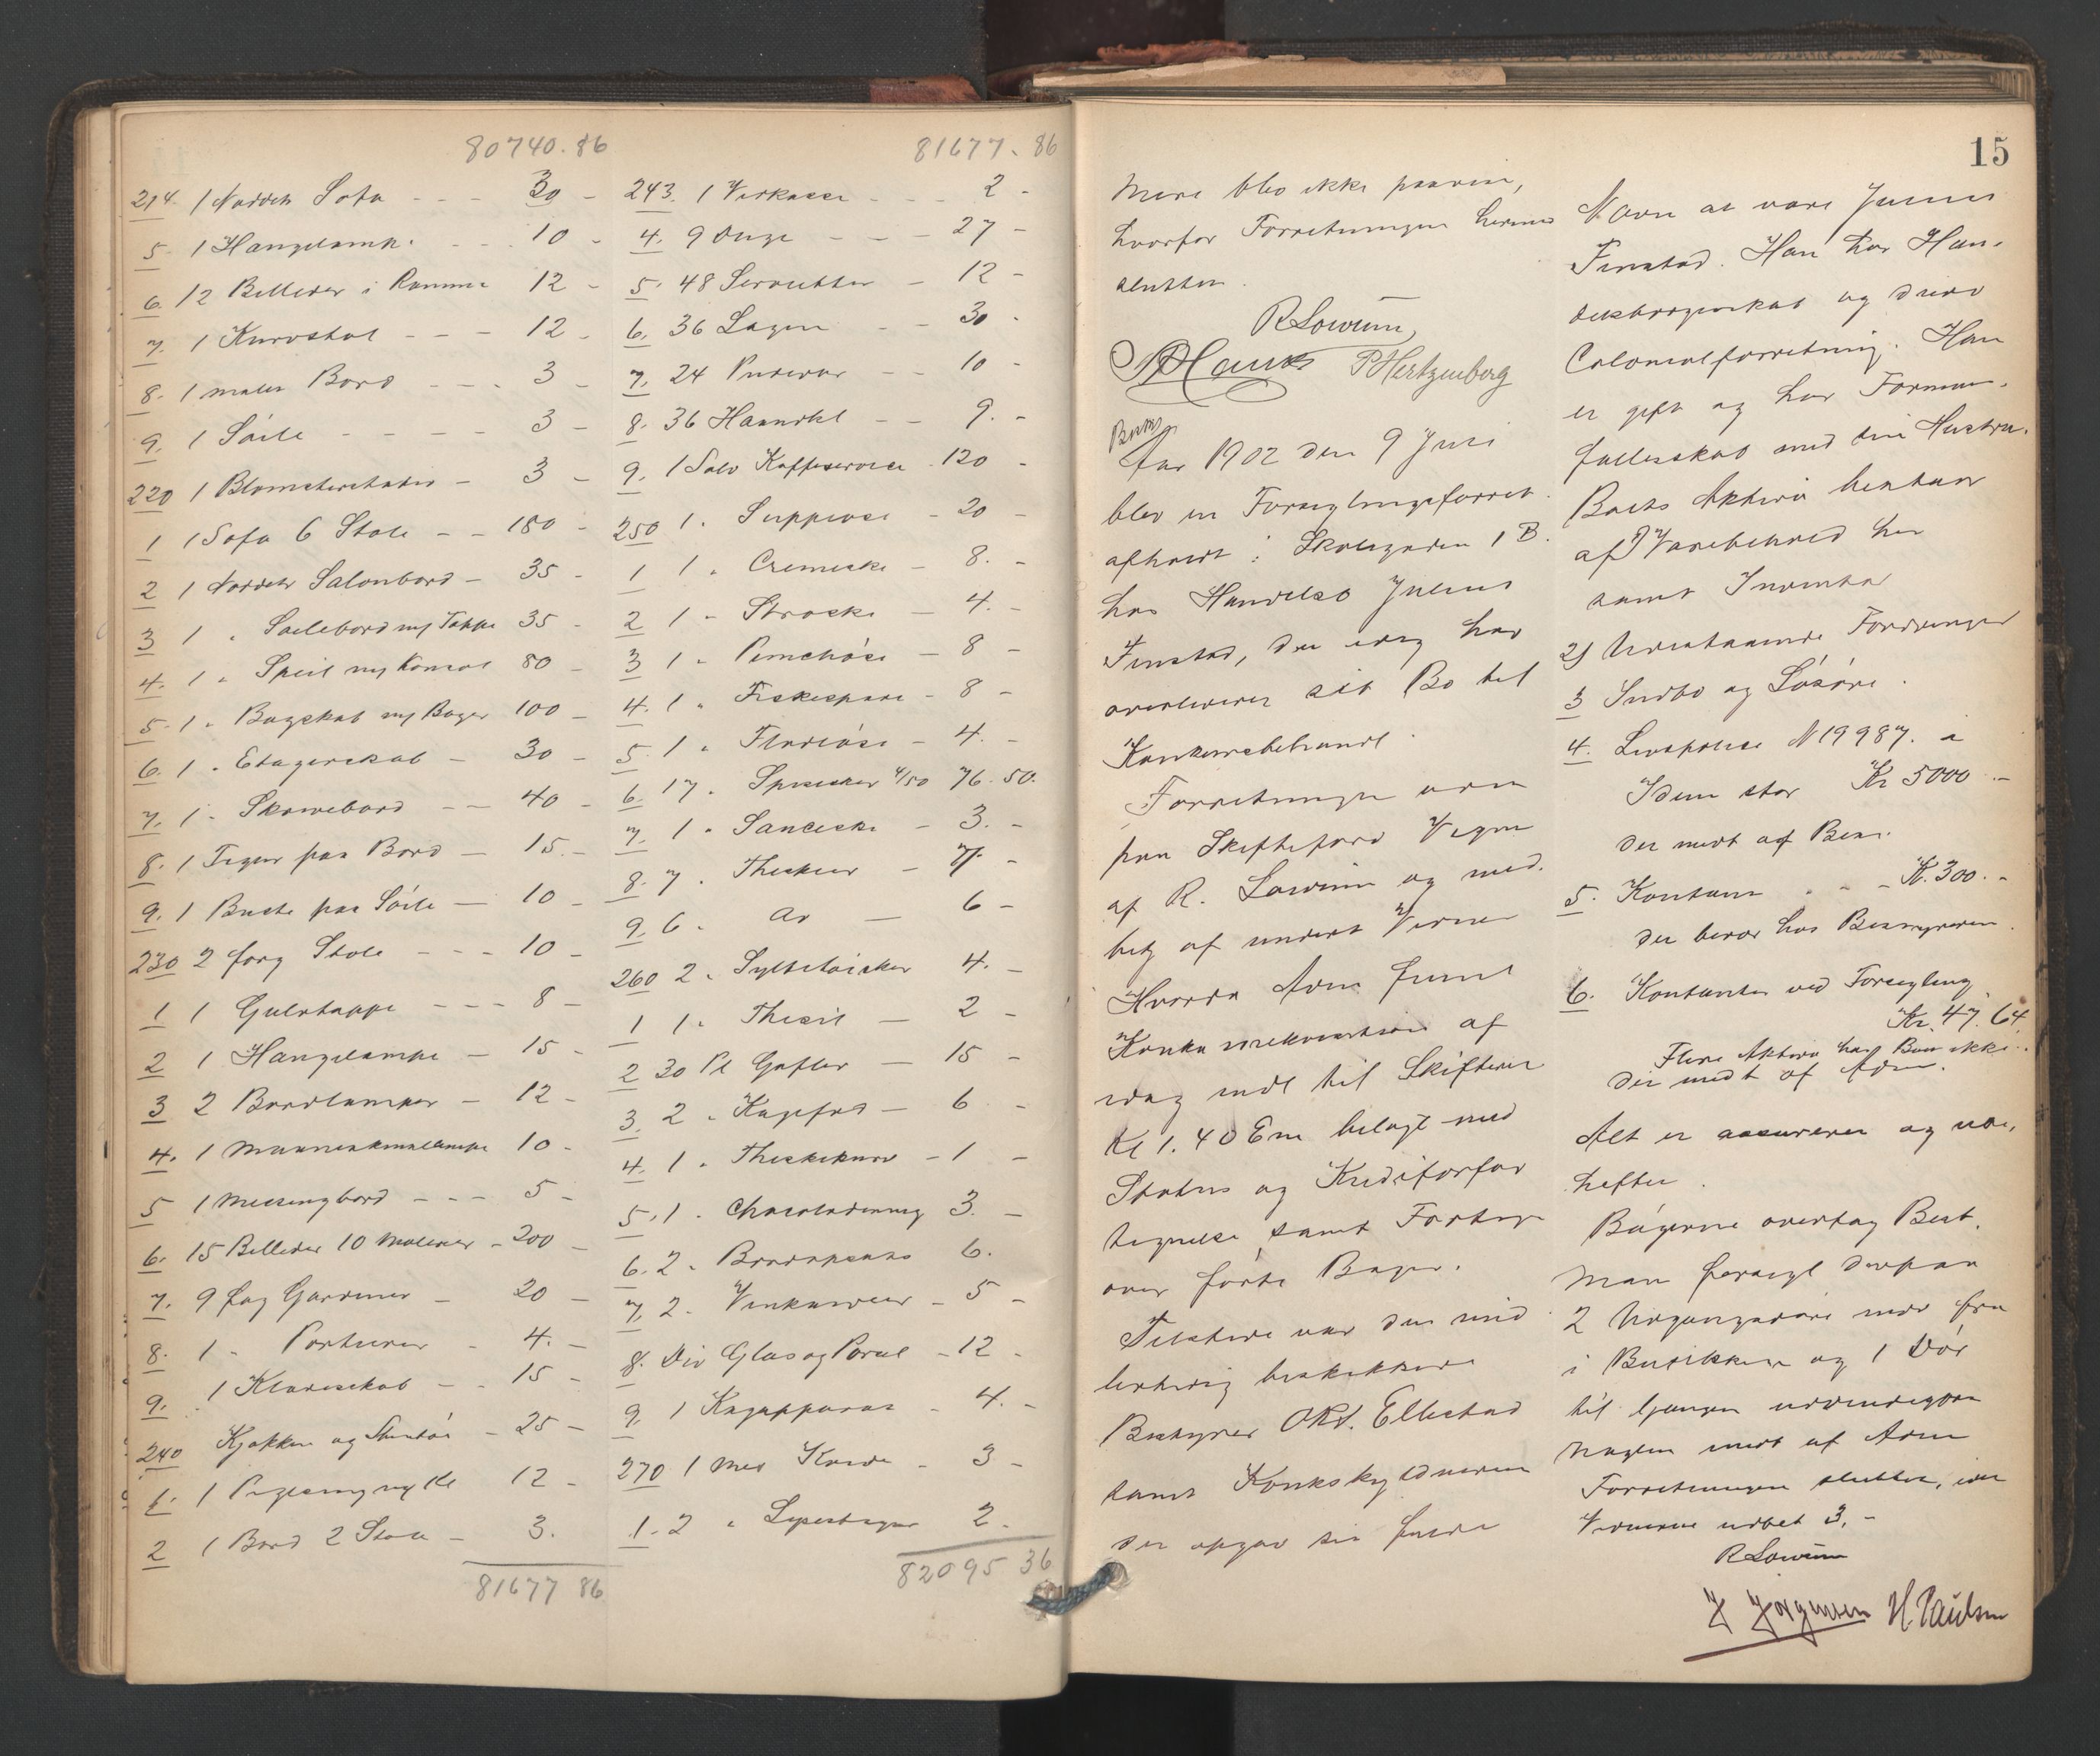 80740.86
214 1 Nødetr Sofa - - - 30 -
5 1 Hangelamp. - - - 10 -
6. 12 Billeder i Ramme 12 -
7. 1 Kurvstol - - - 12 -
8. 1 malet Bord - - - 3 -
9. 1 Söile - - - - 3 -
220 1 Blomsterstativ - 3 -
1 1 Sofa 6 Stole - - 180 -
2 1 Salonbord - 35 -
3 1 " Soilebord m/ Tæppe 35 -
4. 1 " Speil m/ Konsol 80 -
5. 1 " Bogskab m/ Bøger 100 -
6. 1 " Etagerskab - 30 -
7. 1 " Skrivebord - - 40 -
8. 1 Figur paa Bord - 15. -
9. 1 Buste paa Söile - 10 -
230 2 forg Stole - - - 10 -
1 1 Gulvtæppe - - - 8 -
2 1 Hangelampe - 15 -
3 2 Bordlamper - 12 -
4. 1 10 -
5 1 Messingbord - - - 5 -
6. 15 Billeder 10 Malerier - 200 -
7. 9 fag Gardiner - 20 -
8. 1 " Portierer - 4. -
9. 1 Klædeskab - - 15 -
240 Kjøkken og - 25 -
1. 1 Pigeseng m/ Kl 12 -
2 1 Bord 2 Stole - 3.
81677 86
81677. 86
243. 1 Virkasse - - - 2 -
4. 9 Duge - - - 27 -
5. 48 Servietter - 12 -
6. 36 Lagen - - 30 -
7. 24 Pudevar - - 10 -
8. 36 Haandkl - - 9. -
9. 1 Sølv Kaffeservice - 120 -
250 1 " Suppeøse - 20 -
1 1 " Cremeske - 8. -
2 1 " Ströske - 4. -
3 1 " Punchöse - 8 -
4. 1 " Fiskespade - 8 -
5. 1 " Flödeöse - 4. -
6. 17 " Spiseskeer 4/50 76.50.
7. 1 " Sauceske - 3. -
8. 7 " Theskeer - 7. -
9. 6 " do - 6 -
260 2 " Syltetöiskeer 4. -
1 1 " Thesil - 2 -
2 30 Pl Gafler - 15 -
3. 2 " Kagefad - 6 -
4. 1 " Theskekurv - 1 -
5. 1 " Chocolademug 3. -
6. 2 " Brødspader 6.
7. 2 " Vinkurver - 5 -
8. Div Glas og Porcel - 12 -
9. 1 Kogapparat - 4. -
270 1 Mes Krone - 3 -
1. 2 " Lysestager 2. -
82095 36
15
Mere blev ikke paavist,
hvorfor Forretningen hermed
sluttet.
R Lowum
P Hertzenberg
Aar 1902 den 9 Juni
blev en Forseglingsforret
afholdt i Skolegaden 1 B.
hos Handelsb Julius
Finstad, der idag har
overleveret sit Bo til
Konkursbehandl.
Forretningen adm
paa Skiftefoged Vegne
af R. Lowum og med.
betj af undert Vidner
Hvorda Adm freml
Konku srekvisition af
idag indl til Skifteret
Kl 1. 40 Em belagt med
Status og Kreditorfor
tegnelse samt Forteg
over førte Bøger.
Tilstede var den mid
lertidig beskikkede
Bestyrer ORS. Ellestad
samt Konkskyldneren
der opgav sit fulde
Navn at være Julius
Finstad. Han har Han-
delsborgerskab og drev
Colonialforretning. Han
er gift og har Formues-
fællesskab med sin Hustru.
Boets Aktiva bestaar
af 1) Varebehold her
samt Inventar
2) Udestaaende Fordringer
3 Indbo og Løsøre.
4. Livspolice N 19987. i
Idun stor Kr 5000 -
der medt af Best.
5. Kontant - - - Kr. 300. -
der beror hos Bestyreren.
6. Kontanter ved Forsegling
Kr. 47. 64.
Flere Aktiva har Boet ikke.
der medt af Adm.
Alt er assureret og ube.
heftet.
Bøgerne overtag Best.
Man forsegl derpaa
2 Udgangsdøre ned fra
i Butikken og 1 Dör
til Gangen udvendig
Nøglen medt af Adm
Forretningen sluttet, idet
Vidnerne udbet 3. -
R Lowum
J Jørgensen H. Paulsen